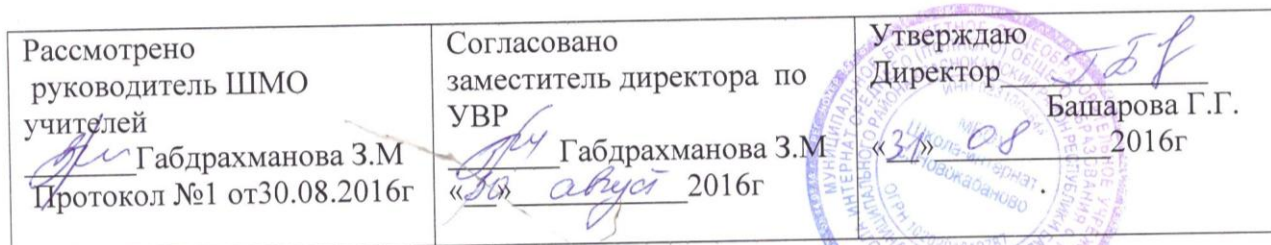 Рассмотрено
руководитель ШМО
учителей
Габдрахманова З.М
Протокол №1 от30.08.2016г
Согласовано
заместитель директора по
УВР
Габдрахманова З.М
«30» август 2016г
Утверждаю
Директор
Башарова Г.Г.
«31» 08 2016г
.
Школа-интернат